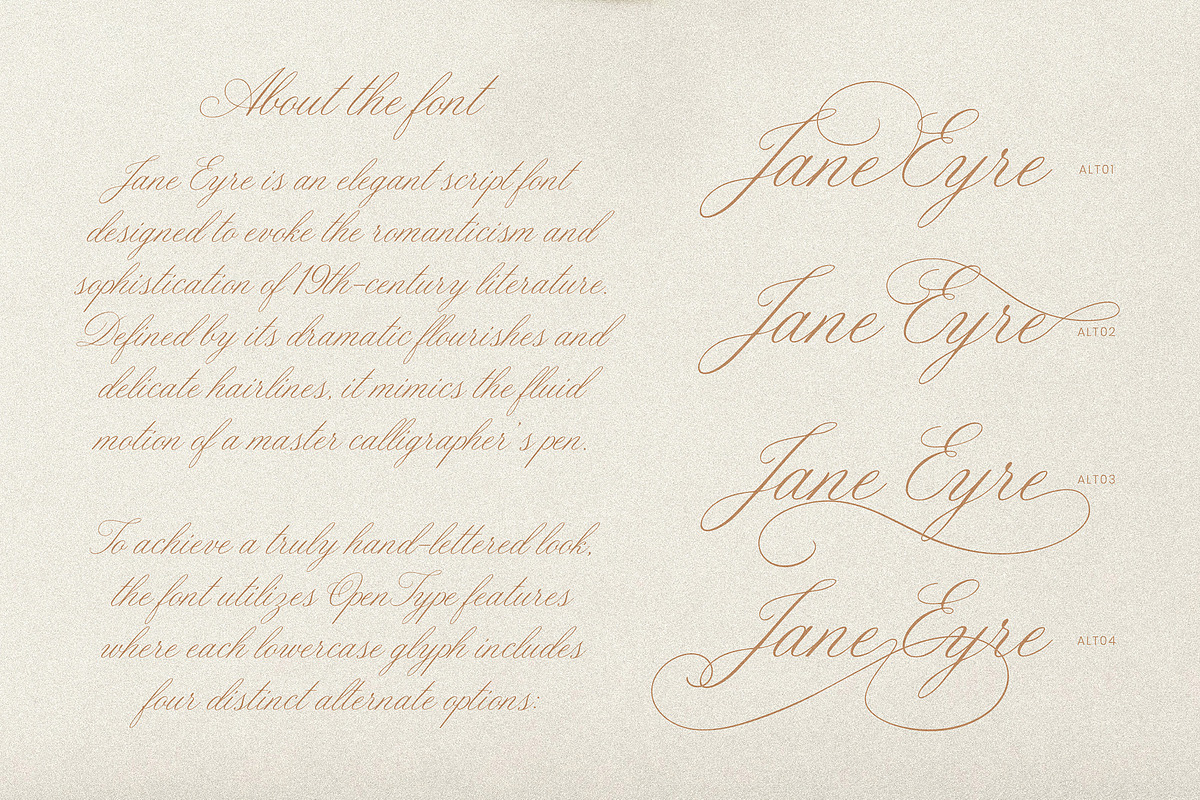 About the font
Jane Eyre is an elegant script font
designed to evoke the romanticism and
sophistication of 19th-century literature.
Defined by its dramatic flourishes and
delicate hairlines, it mimics the fluid
motion of a master calligrapher's pen.
To achieve a truly hand-lettered look,
the font utilizes OpenType features
where each lowercase glyph includes
four distinct alternate options:
Jane Eyre ALT01
Jane Eyre ALT02
Jane Eyre ALT03
Jane Eyre ALT04